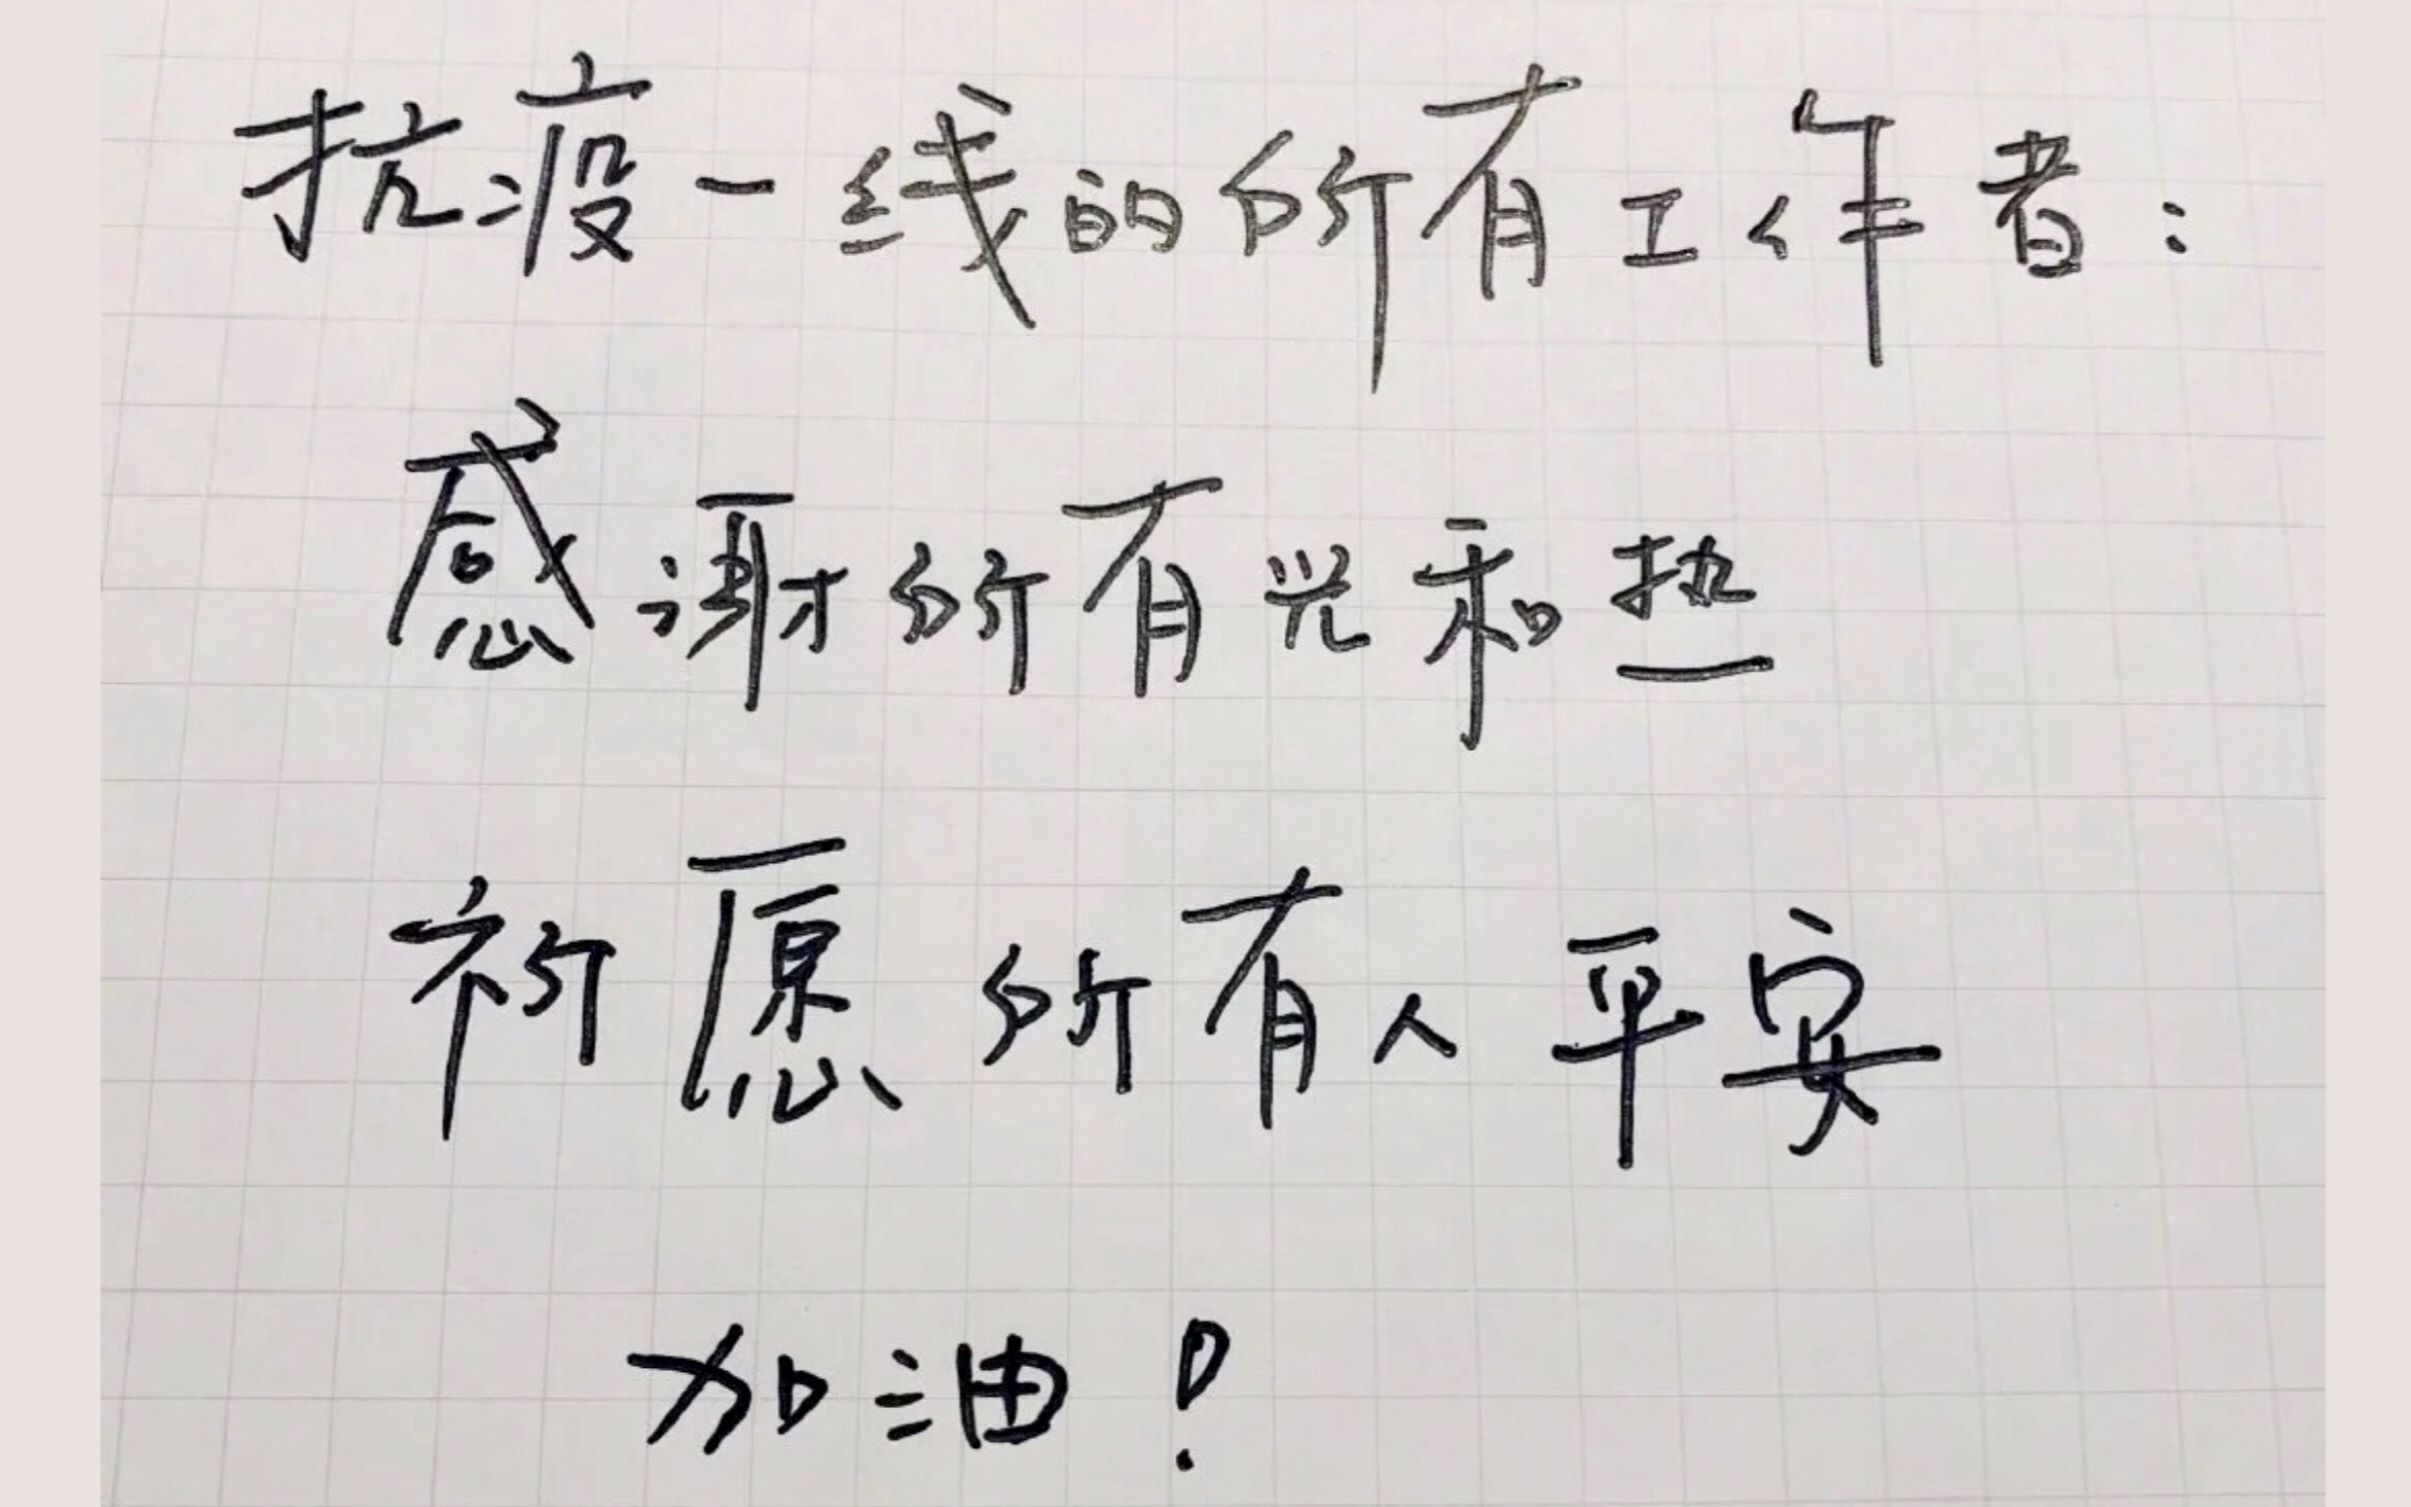 抗疫一线的所有工作者：
感谢所有光和热
祈愿所有人平安
加油！